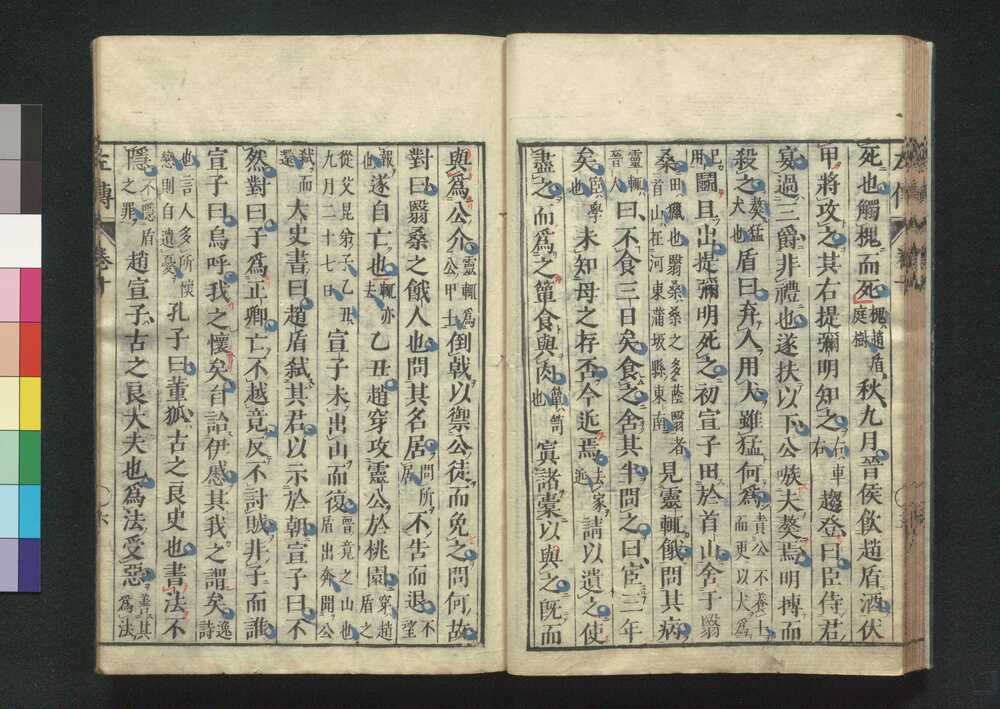 死也觸槐而死槐趙盾庭樹秋九月晉侯飲趙盾酒伏
甲將攻之其右提彌明知之右車右趨登曰臣侍君
宴過三爵非禮也遂扶以下公嗾夫獒焉明搏而
殺之獒猛犬也盾曰弃人用犬雖猛何為責公不養士而更以犬為
己用鬬且出提彌明死之初宣子田於首山舍于翳
桑田獵也翳桑桑之多蔭翳者首山在河東蒲坂縣東南見靈輒餓問其病
靈輒晉人曰不食三日矣食之舍其半問之曰宦三年
矣宦學也未知母之存否今近焉去家近請以遺之使
盡之而為之簞食與肉簞笥也寘諸橐以與之既而
與為公介靈輒為公甲士倒戟以禦公徒而免之問何故
對曰翳桑之餓人也問其名居問所居不告而退不望
報也遂自亡也輒亦去乙丑趙穿攻靈公於桃園穿趙盾之
從父昆弟子乙丑九月二十七日宣子未出山而復晉竟之山也盾出奔聞公
弒而還大史書曰趙盾弒其君以示於朝宣子曰不
然對曰子為正卿亡不越竟反不討賊非子而誰
宣子曰烏呼我之懷矣自詒伊慼其我之謂矣逸詩
也言人多所懷戀則自遺憂孔子曰董狐古之良史也書法不
隱不隱盾之罪趙宣子古之良大夫也為法受惡善其為法
左傳 卷十 六